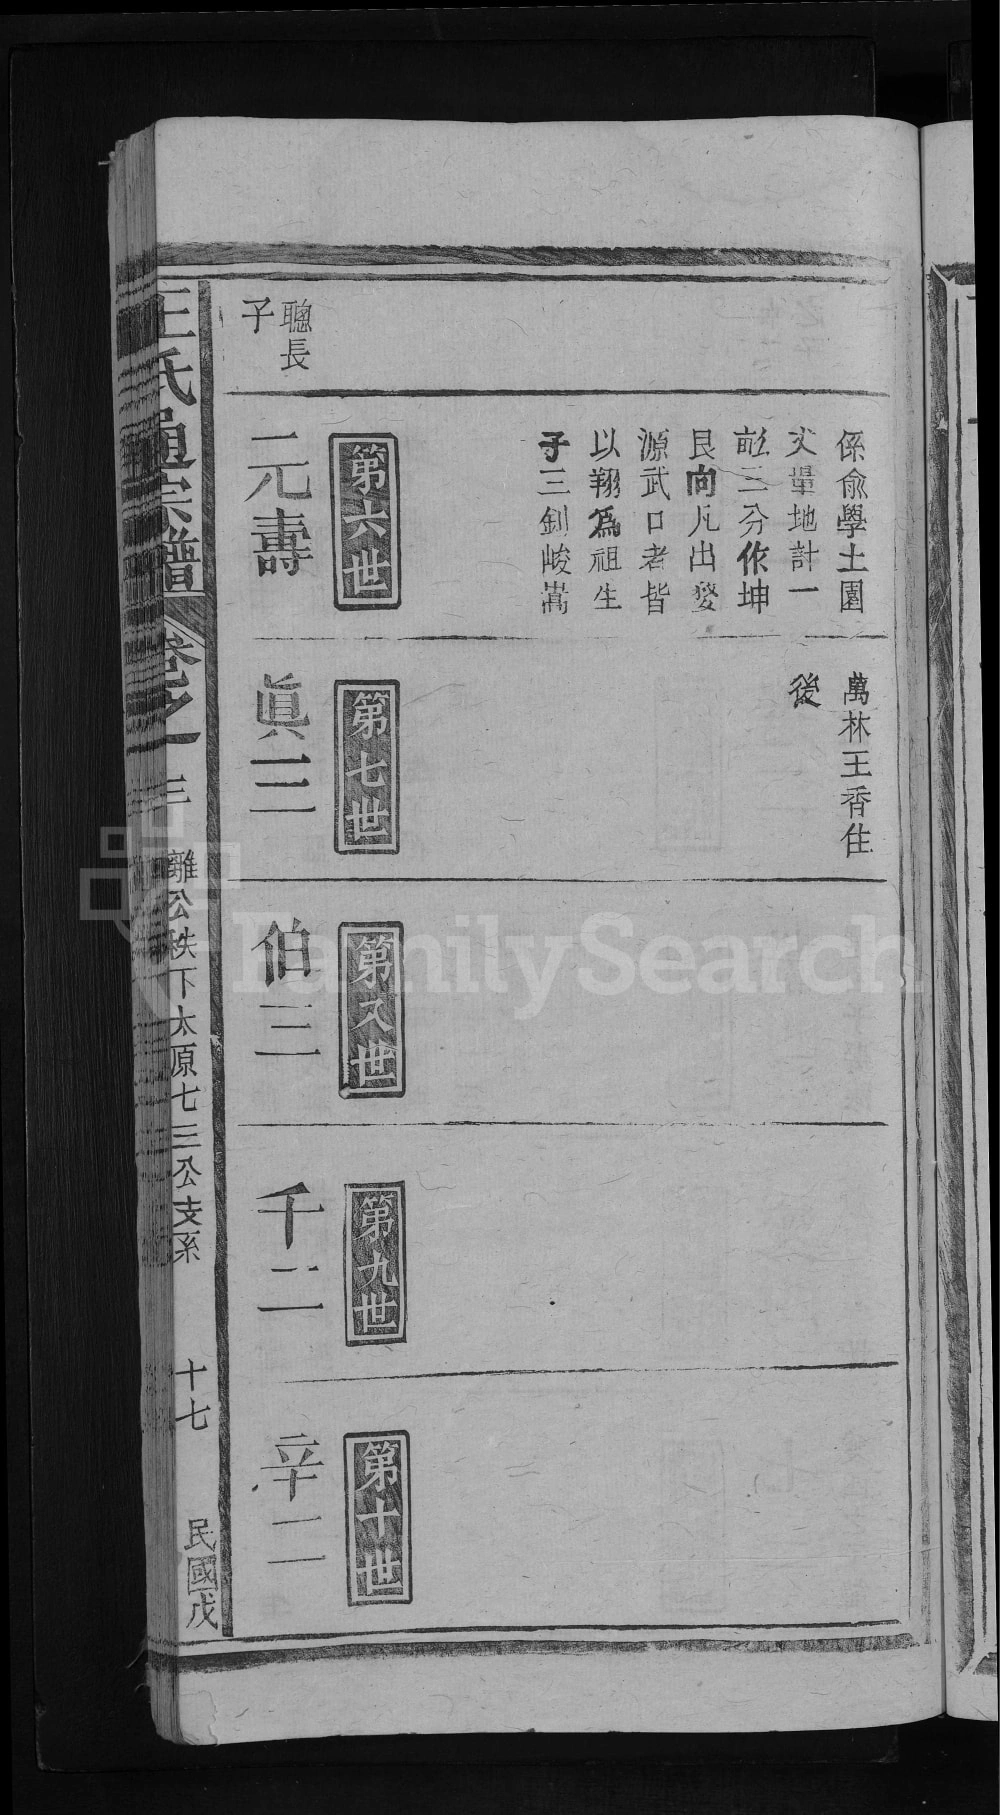 係俞學土園
丈單地計一
畝三分作坤
艮向凡出婺
源武口者皆
以翔爲祖生
子三釗峻嵩
萬林王香住
後
聰長
子
第六世
元壽
第七世
眞三
第八世
伯三
第九世
千二
第十世
辛二
王氏通宗譜
卷之一
三
離公秩下太原七三公支系
十七
民國戊
FamilySearch